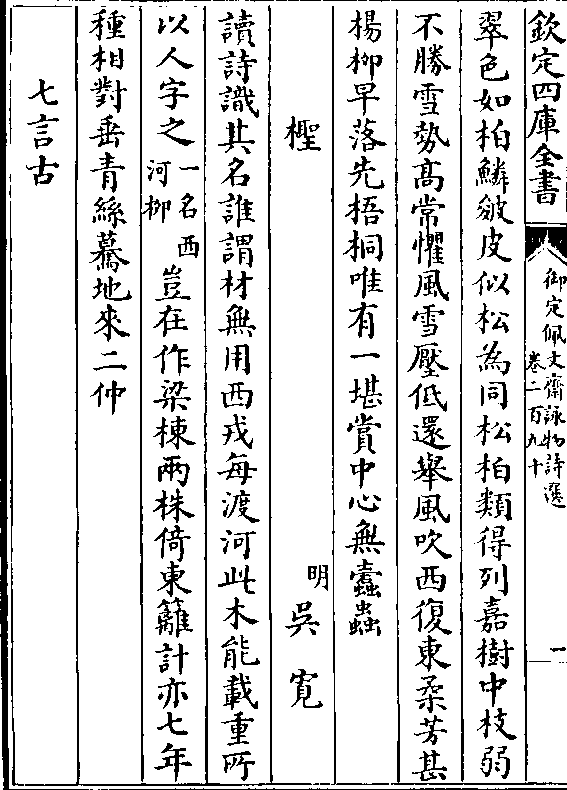 欽定四庫全書
御定佩文齋詠物詩選
卷二百九十
一
翠色如柏鱗皴皮似松為同松柏類得列嘉樹中枝弱
不勝雪勢高常懼風雪壓低還舉風吹西復東柔芳甚
楊柳早落先梧桐唯有一堪賞中心無蠹蟲
檉
明
吳寛
讀詩識其名誰謂材無用西戎每渡河此木能載重所
以人字之一名西河柳豈在作梁棟兩株倚東籬計亦七年
種相對垂青絲驀地來二仲
七言古